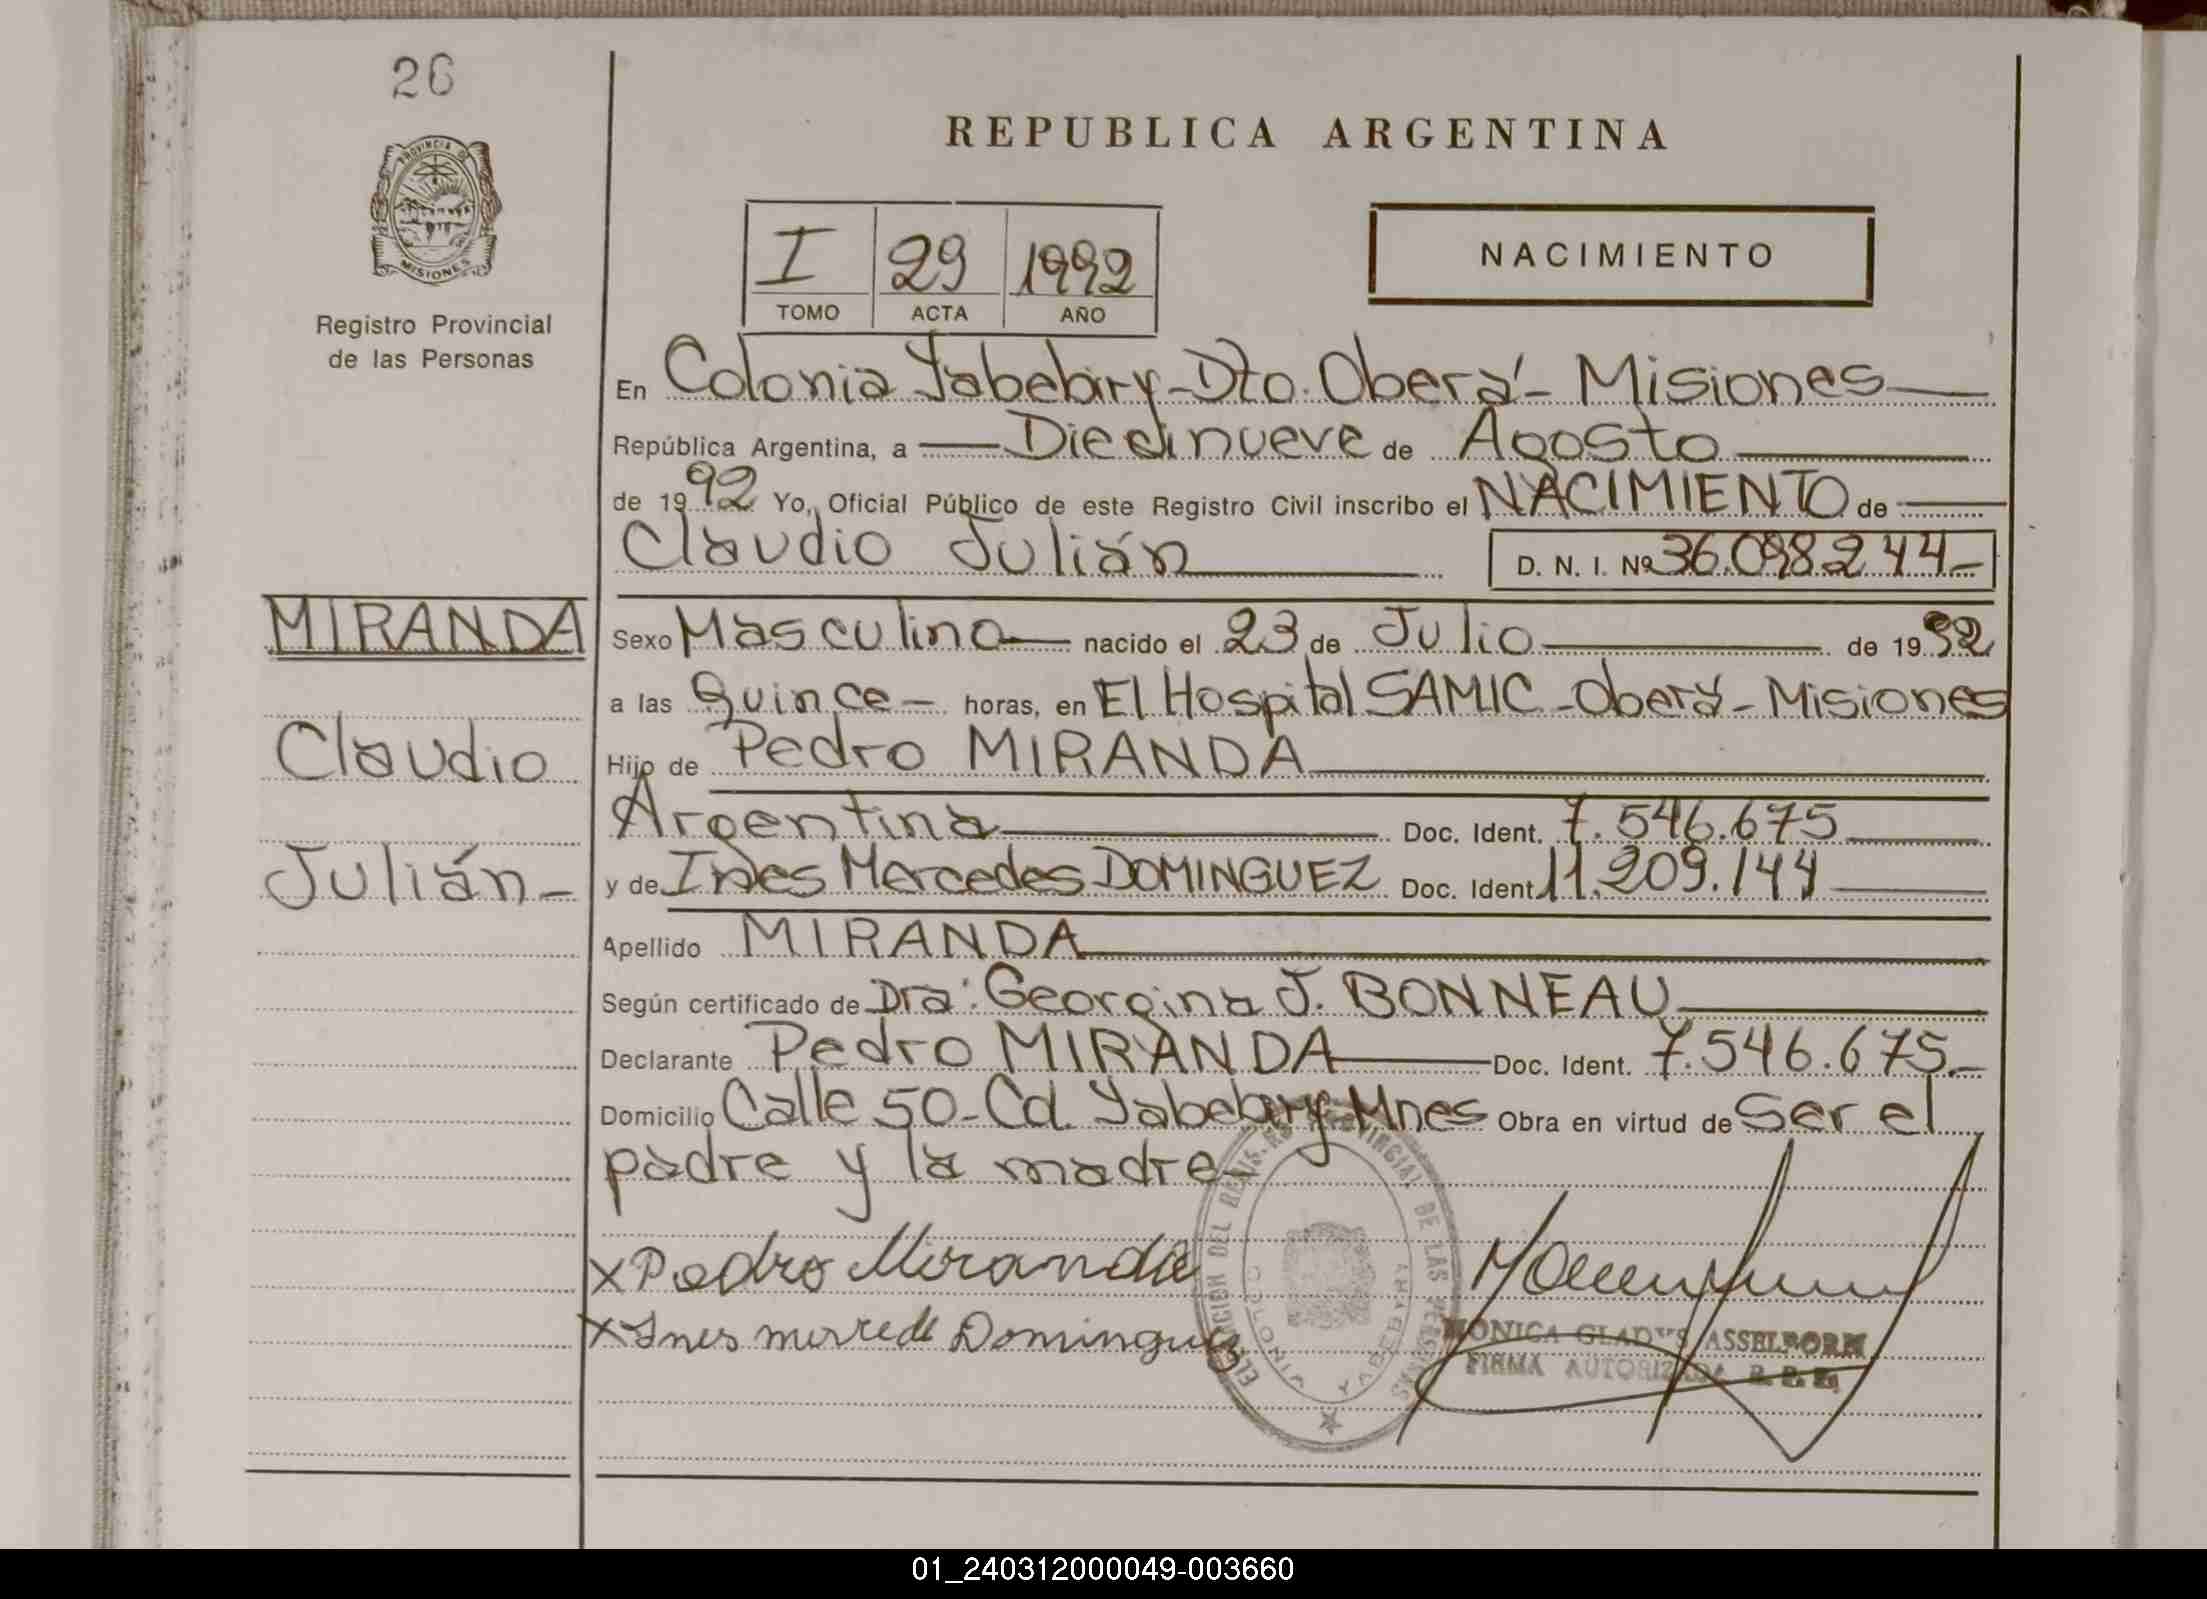 26
PROVINCIA DE
MISIONES
Registro Provincial
de las Personas
MIRANDA
Claudio
Julián-
REPUBLICA ARGENTINA
I 29 1992
TOMO ACTA AÑO
NACIMIENTO
En Colonia Yabebiry-Dto. Oberá- Misiones
República Argentina, a Diecinueve de Agosto
de 1992 Yo, Oficial Público de este Registro Civil inscribo el NACIMIENTO de
Claudio Julián D. N. I. Nº 36.098.244-
Sexo Masculino nacido el 23 de Julio de 1992
a las Quince- horas, en El Hospital SAMIC-Oberá-Misiones
Hijo de Pedro MIRANDA
Argentina Doc. Ident. 7.546.675
y de Ines Mercedes DOMINGUEZ Doc. Ident. 11.209.144
Apellido MIRANDA
Según certificado de Dra. Georgina J. BONNEAU
Declarante Pedro MIRANDA Doc. Ident. 7.546.675-
Domicilio Calle 50-Cd. Yabebiry-Mnes Obra en virtud de Ser el
padre y la madre-
X Pedro Miranda
X Ines mercede Dominguez
PROVINCIAL DE LAS PERSONAS
COLONIA YABEBIRY
MONICA GLADYS ASSELBORN
FIRMA AUTORIZADA R. P. P.
01_240312000049-003660